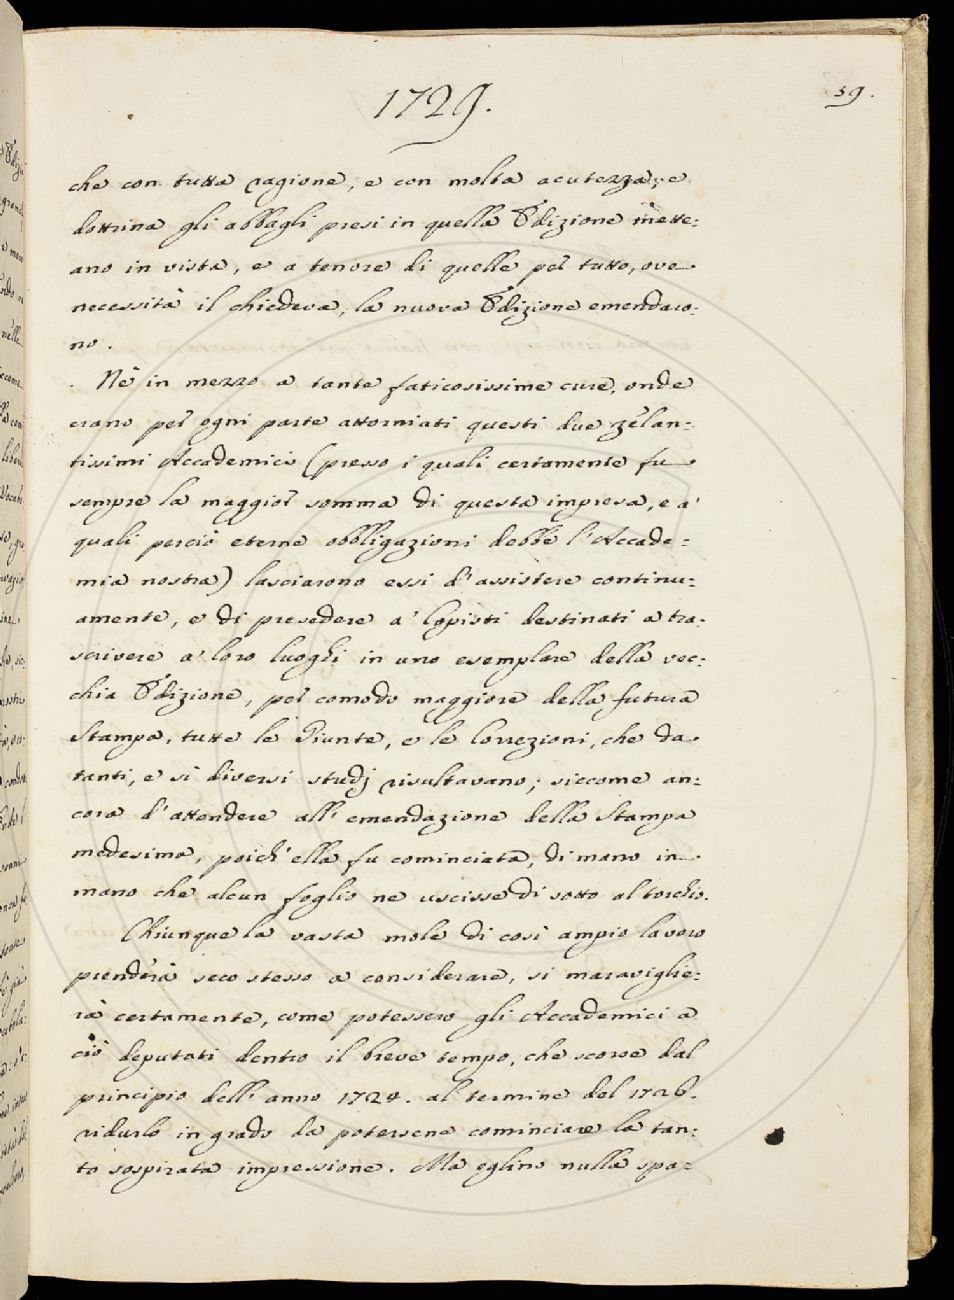 1729.
59.
che con tutta ragione, e con molta acutezza, e
dottrina gli abbagli presi in quella Edizione mette=
ano in vista, e a tenore di quelle per tutto, ove
necessità il chiedeva, la nuova Edizione emendaro=
no.
Nè in mezzo a tante faticosissime cure, onde
erano per ogni parte attorniati questi due zelan=
tissimi Accademici (presso i quali certamente fu
sempre la maggior somma di questa impresa, e a'
quali perciò eterne obbligazioni debbe l'Accade=
mia nostra) lasciarono essi d'assistere continu=
amente, e di presedere a' Copisti destinati a tra=
scrivere a' loro luoghi in uno esemplare della vec=
chia Edizione, per comodo maggiore della futura
Stampa, tutte le Giunte, e le Correzioni, che da
tanti, e sì diversi studj risultavano; siccome an=
cora d'attendere all'emendazione della Stampa
medesima, poich'ella fu cominciata, di mano in
mano che alcun foglio ne uscisse di sotto al torchio.
Chiunque la vasta mole di così ampio lavoro
prenderà seco stesso a considerare, si maraviglie=
rà certamente, come potessero gli Accademici a
ciò deputati dentro il breve tempo, che scorse dal
principio dell'anno 1724. al termine del 1726.
ridurlo in grado da potersene cominciare la tan=
to sospirata impressione. Ma eglino nulla spa=